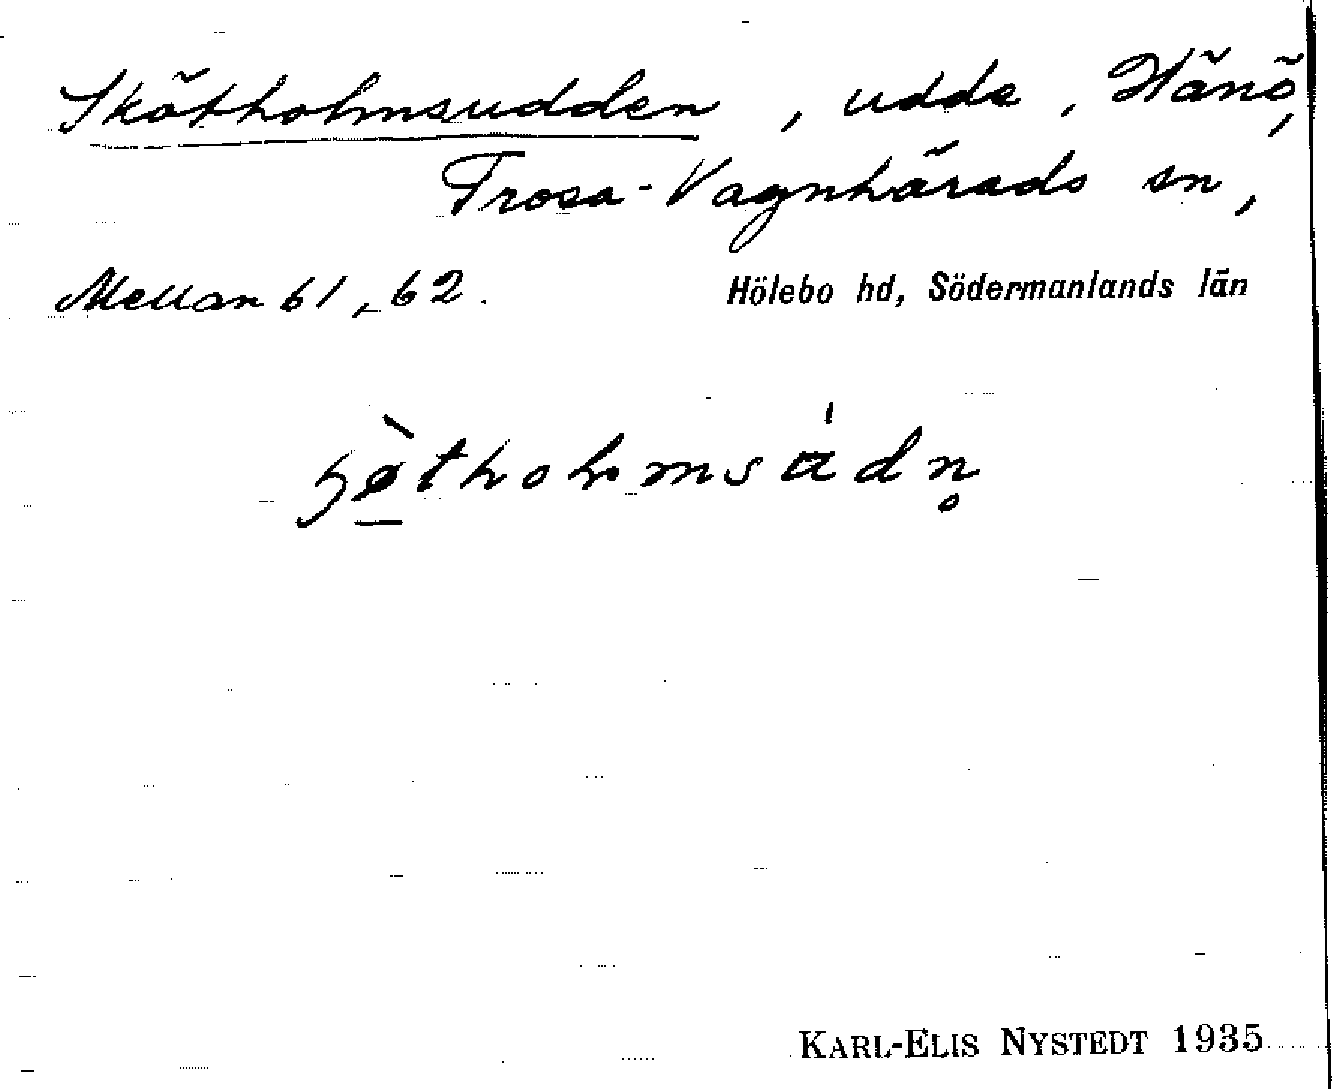 Skötholmsudden, udde, Hänö,
Trosa-Vagnhärads sn,
Mellan 61, 62.
Hölebo hd, Södermanlands län
KARL-ELIS NYSTEDT 1935